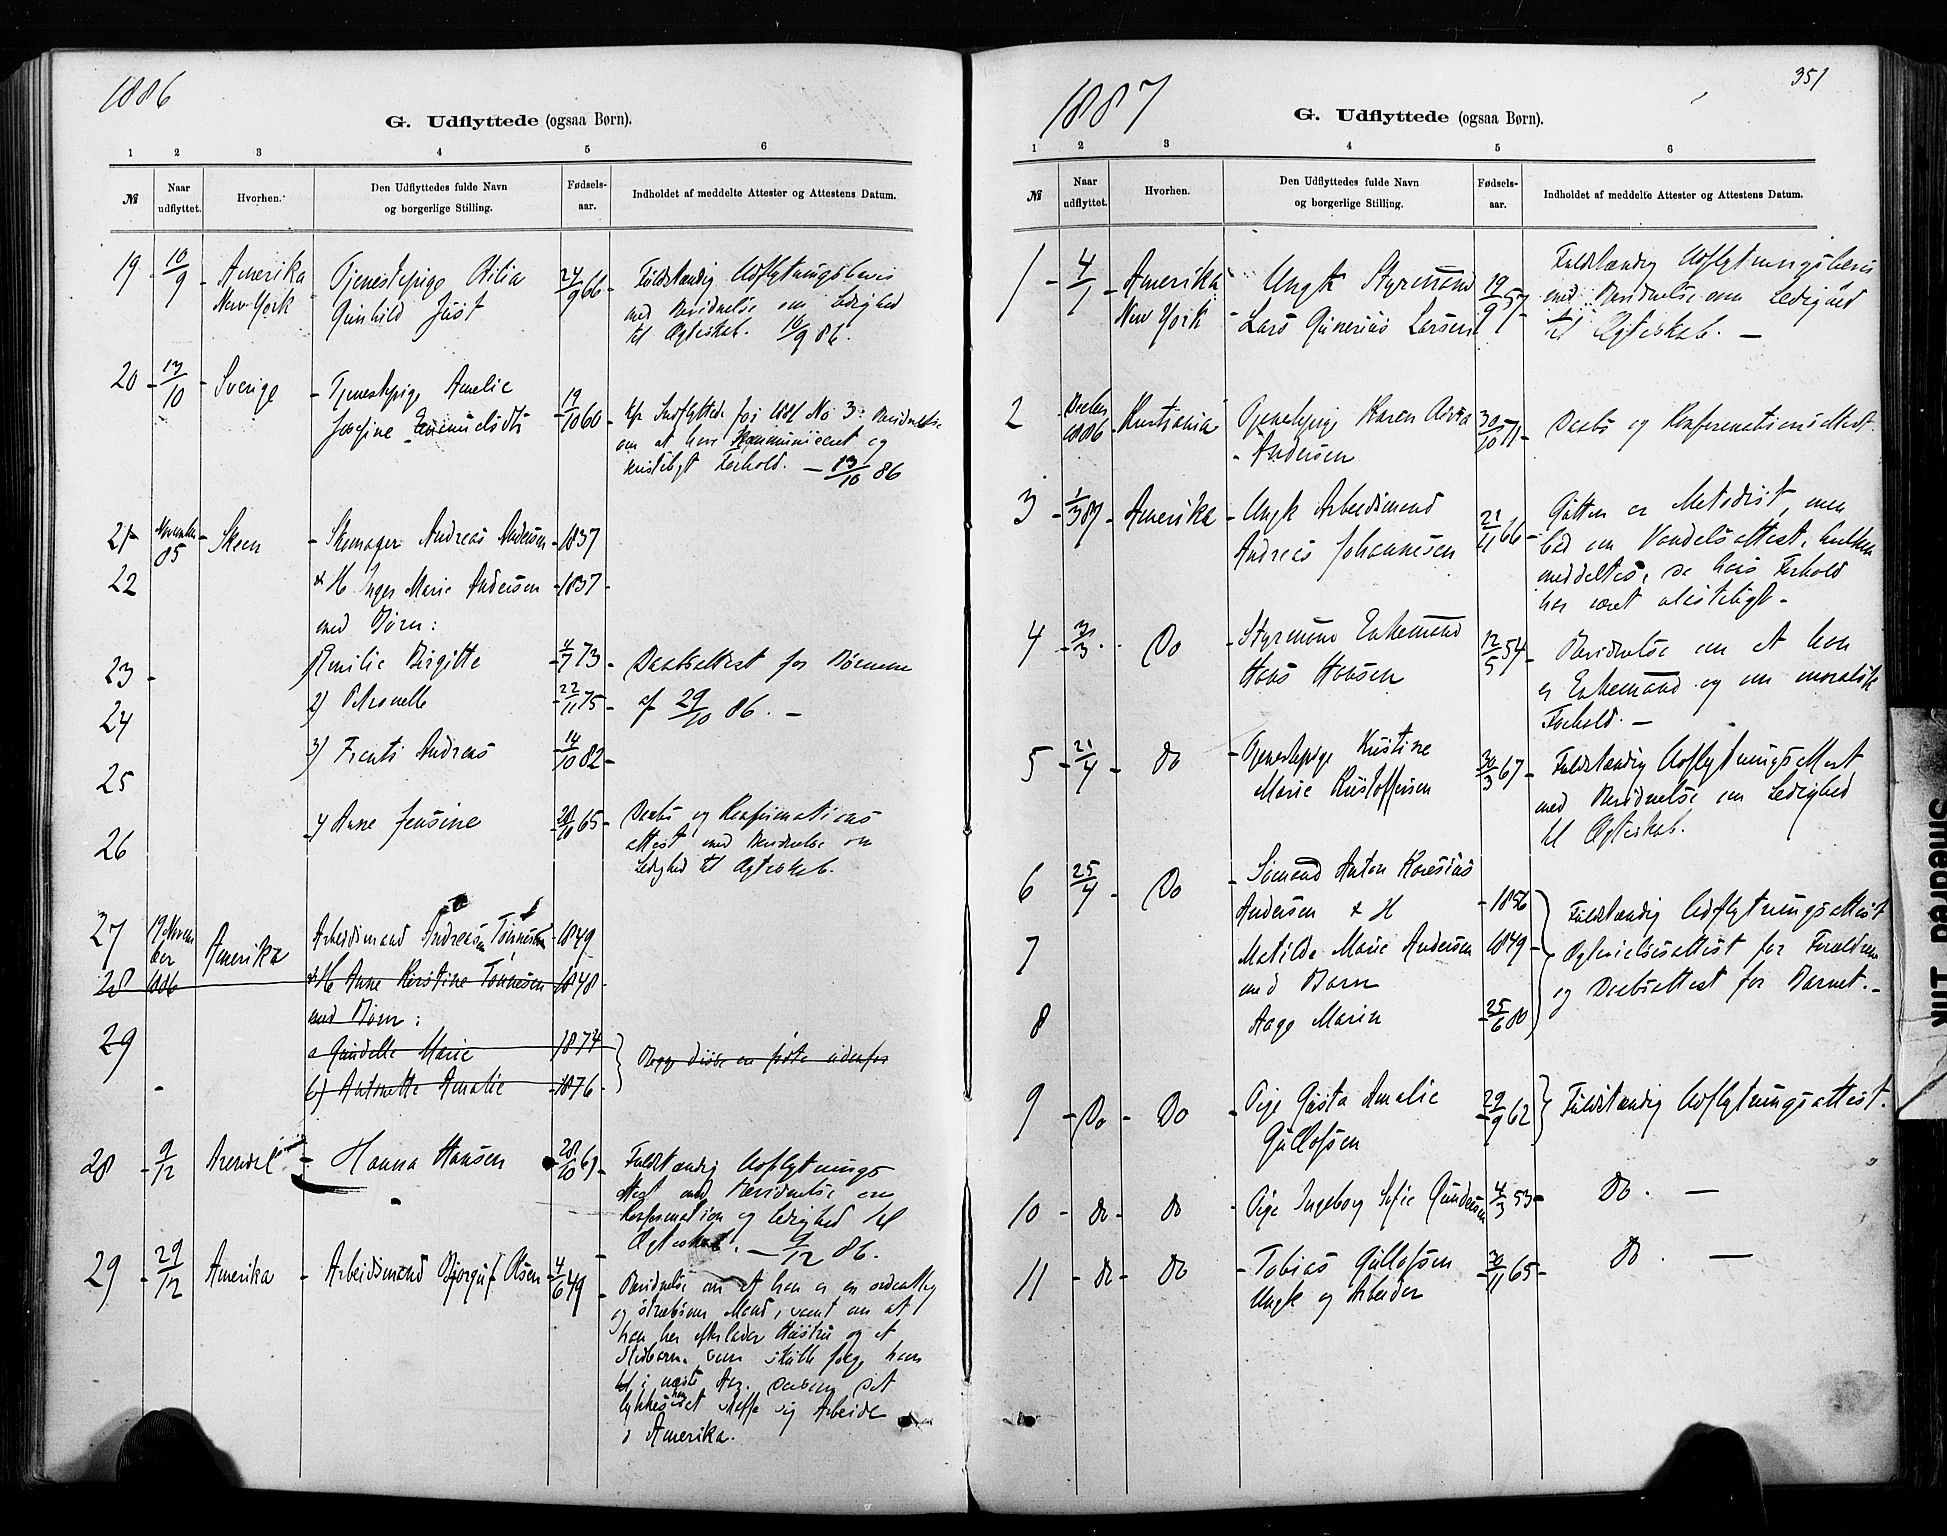 1886
G. Udflyttede (ogsaa Børn).
1 2 3 4 5 6
№ Naar udflyttet. Hvorhen. Den Udflyttedes fulde Navn og borgerlige Stilling. Fødsels-aar. Indholdet af meddelte Attester og Attestens Datum.
19 - 10/9 - Amerika Tjenestepige Otilia 24/9 66 - Fuldstændig Udflytningsbevis
New York Gunhild Just med Bevidnelse om Ledighed
til Ægteskab. 10/9 86.
20 - 13/10 - Sverige - Tjenestepige Amelie 19/10 60
Josefine Indflyttede for 1881 No 3: Bevidnelse
om at have Kommuniceret og
kristeligt Forhold. - 13/10 86
21 November 85 Skeen - Skomager Andreas Andersen - 1837
22 & H Inger Marie Andersen - 1837 -
med Børn:
23 - 1) Emilie Birgitte - 4/7 73 - Daabsattest for Børnene
24 2) Petronelle - 22/11 75 - af 29/10 86. -
25 3) Frents Andreas - 14/10 82 -
26 4) Anne Jensine 65 - Daabs og Konfirmations
attest med Bevidnelse om
Ledighed til Ægteskab.
27 19 Novem Arbeidsmand Andreas Tønnesen - 1849
ber Amerika
28 1886 & H Anne Kirstine Tønnesen - 1848 -
med Børn:
29 a Gundelle Marie 1874
- b) Antonette Amalie - 1876 -
28 - 9/12 Arendal - Hanna Hansen 28/10 61 - Fuldstændig Udflytnings
Attest med Bevidnelse om
Konfirmation og Ledighed til
Ægteskab. - 9/12 86.
29 - 29/12 Amerika - Arbeidsmand Bjørguf Olsen - 4/6 49 - Bevidnelse om at han er en ordentlig
og stræbsom Mand, samt om at
han her efterlader Hustru og et
Stedbarn, som skulle følge ham
til i næste Aar. dersom det
lykkes ham at skaffe sig Arbeide
i Amerika.
1887
351
G. Udflyttede (ogsaa Børn).
1 2 3 4 5 6
№ Naar udflyttet. Hvorhen. Den Udflyttedes fulde Navn og borgerlige Stilling. Fødsels-aar. Indholdet af meddelte Attester og Attestens Datum.
1 - 4/1 - Amerika Ungk Styrmand 19/9 57 - Fuldstændig Udflytningsbevis
New York - Lars Gunerius Larsen med Bevidnelse om Ledighed
til Ægteskab. -
2 Decbr 1886 Kristiania Tjenestepige Karen 30/10 - Daabs og Konfirmationsattest.
- Andersen
3 - 1/3 87 - Amerika - Ungk Arbeidsmand 21/11 66 - Gutten er Metodist, men
Andreas Johannesen bad om Vandelsattest, hvilken
meddeltes, da hans Forhold
har været ulasteligt -
4 - 3/3 - Do - Styrmand Enkemand 12/5 54 - Bevidnelse om at han
Hans Hansen er Enkemand og om moralsk
Forhold. -
5 - 21/4 - do - Tjenestepige Kristine 30/3 67 - Fuldstændig Udflytningsattest
Marie Kristoffersen med Bevidnelse om Ledighed
til Ægteskab.
6 25/4 - Do - Sømand Anton
Andersen & H - 1856 Fuldstændig Udflytningsattest
7 Matilde Marie Andersen 1849 - Ægtevielsesattest for Forældrene
med Barn og Daabsattest for Barnet. -
8 Aage Marin - 25/6 80
9 - Do - Do - Pige Gusta Amalie 29/9 62 Fuldstændig Udflytningsattest.
Gullofsen
10 - do - do Pige Ingeborg Sofie Gundersen 4/3 53 - Do. -
11 - do - do - Tobias Gullofsen - 30/11 65 - do. -
Ungk og Arbeider